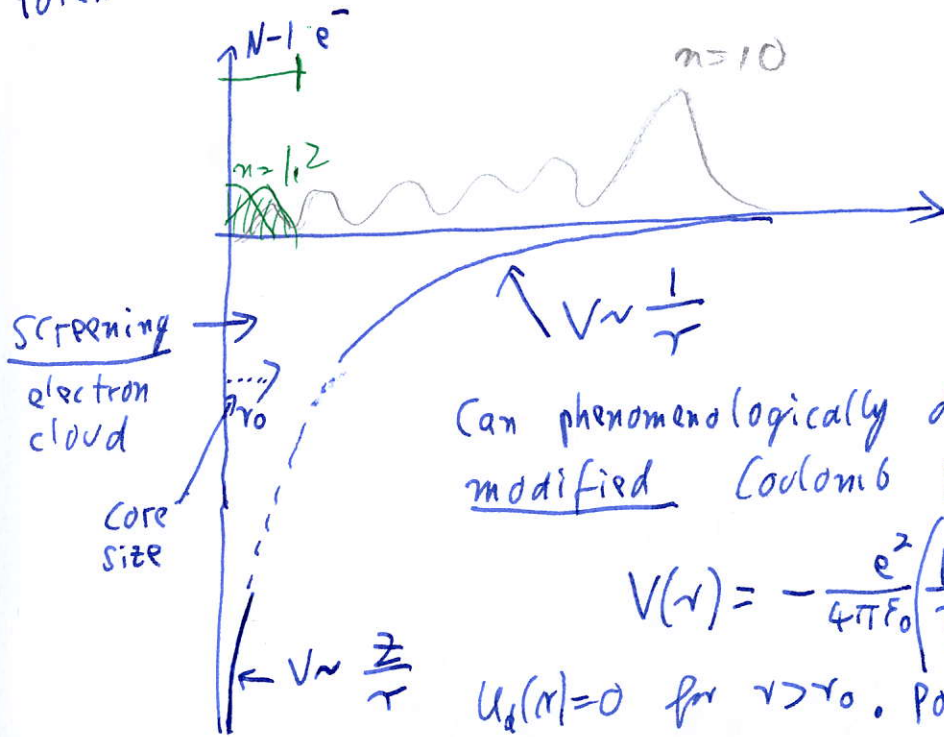 N-1 e⁻
n=10
n=1,2
V ~ 1/r
screening
electron
cloud
r₀
core
size
Can phenomenologically
modified Coulomb
V(r) = - e²/4πε₀ (
V ~ Z/r
U_d(r)=0 for r>r₀.